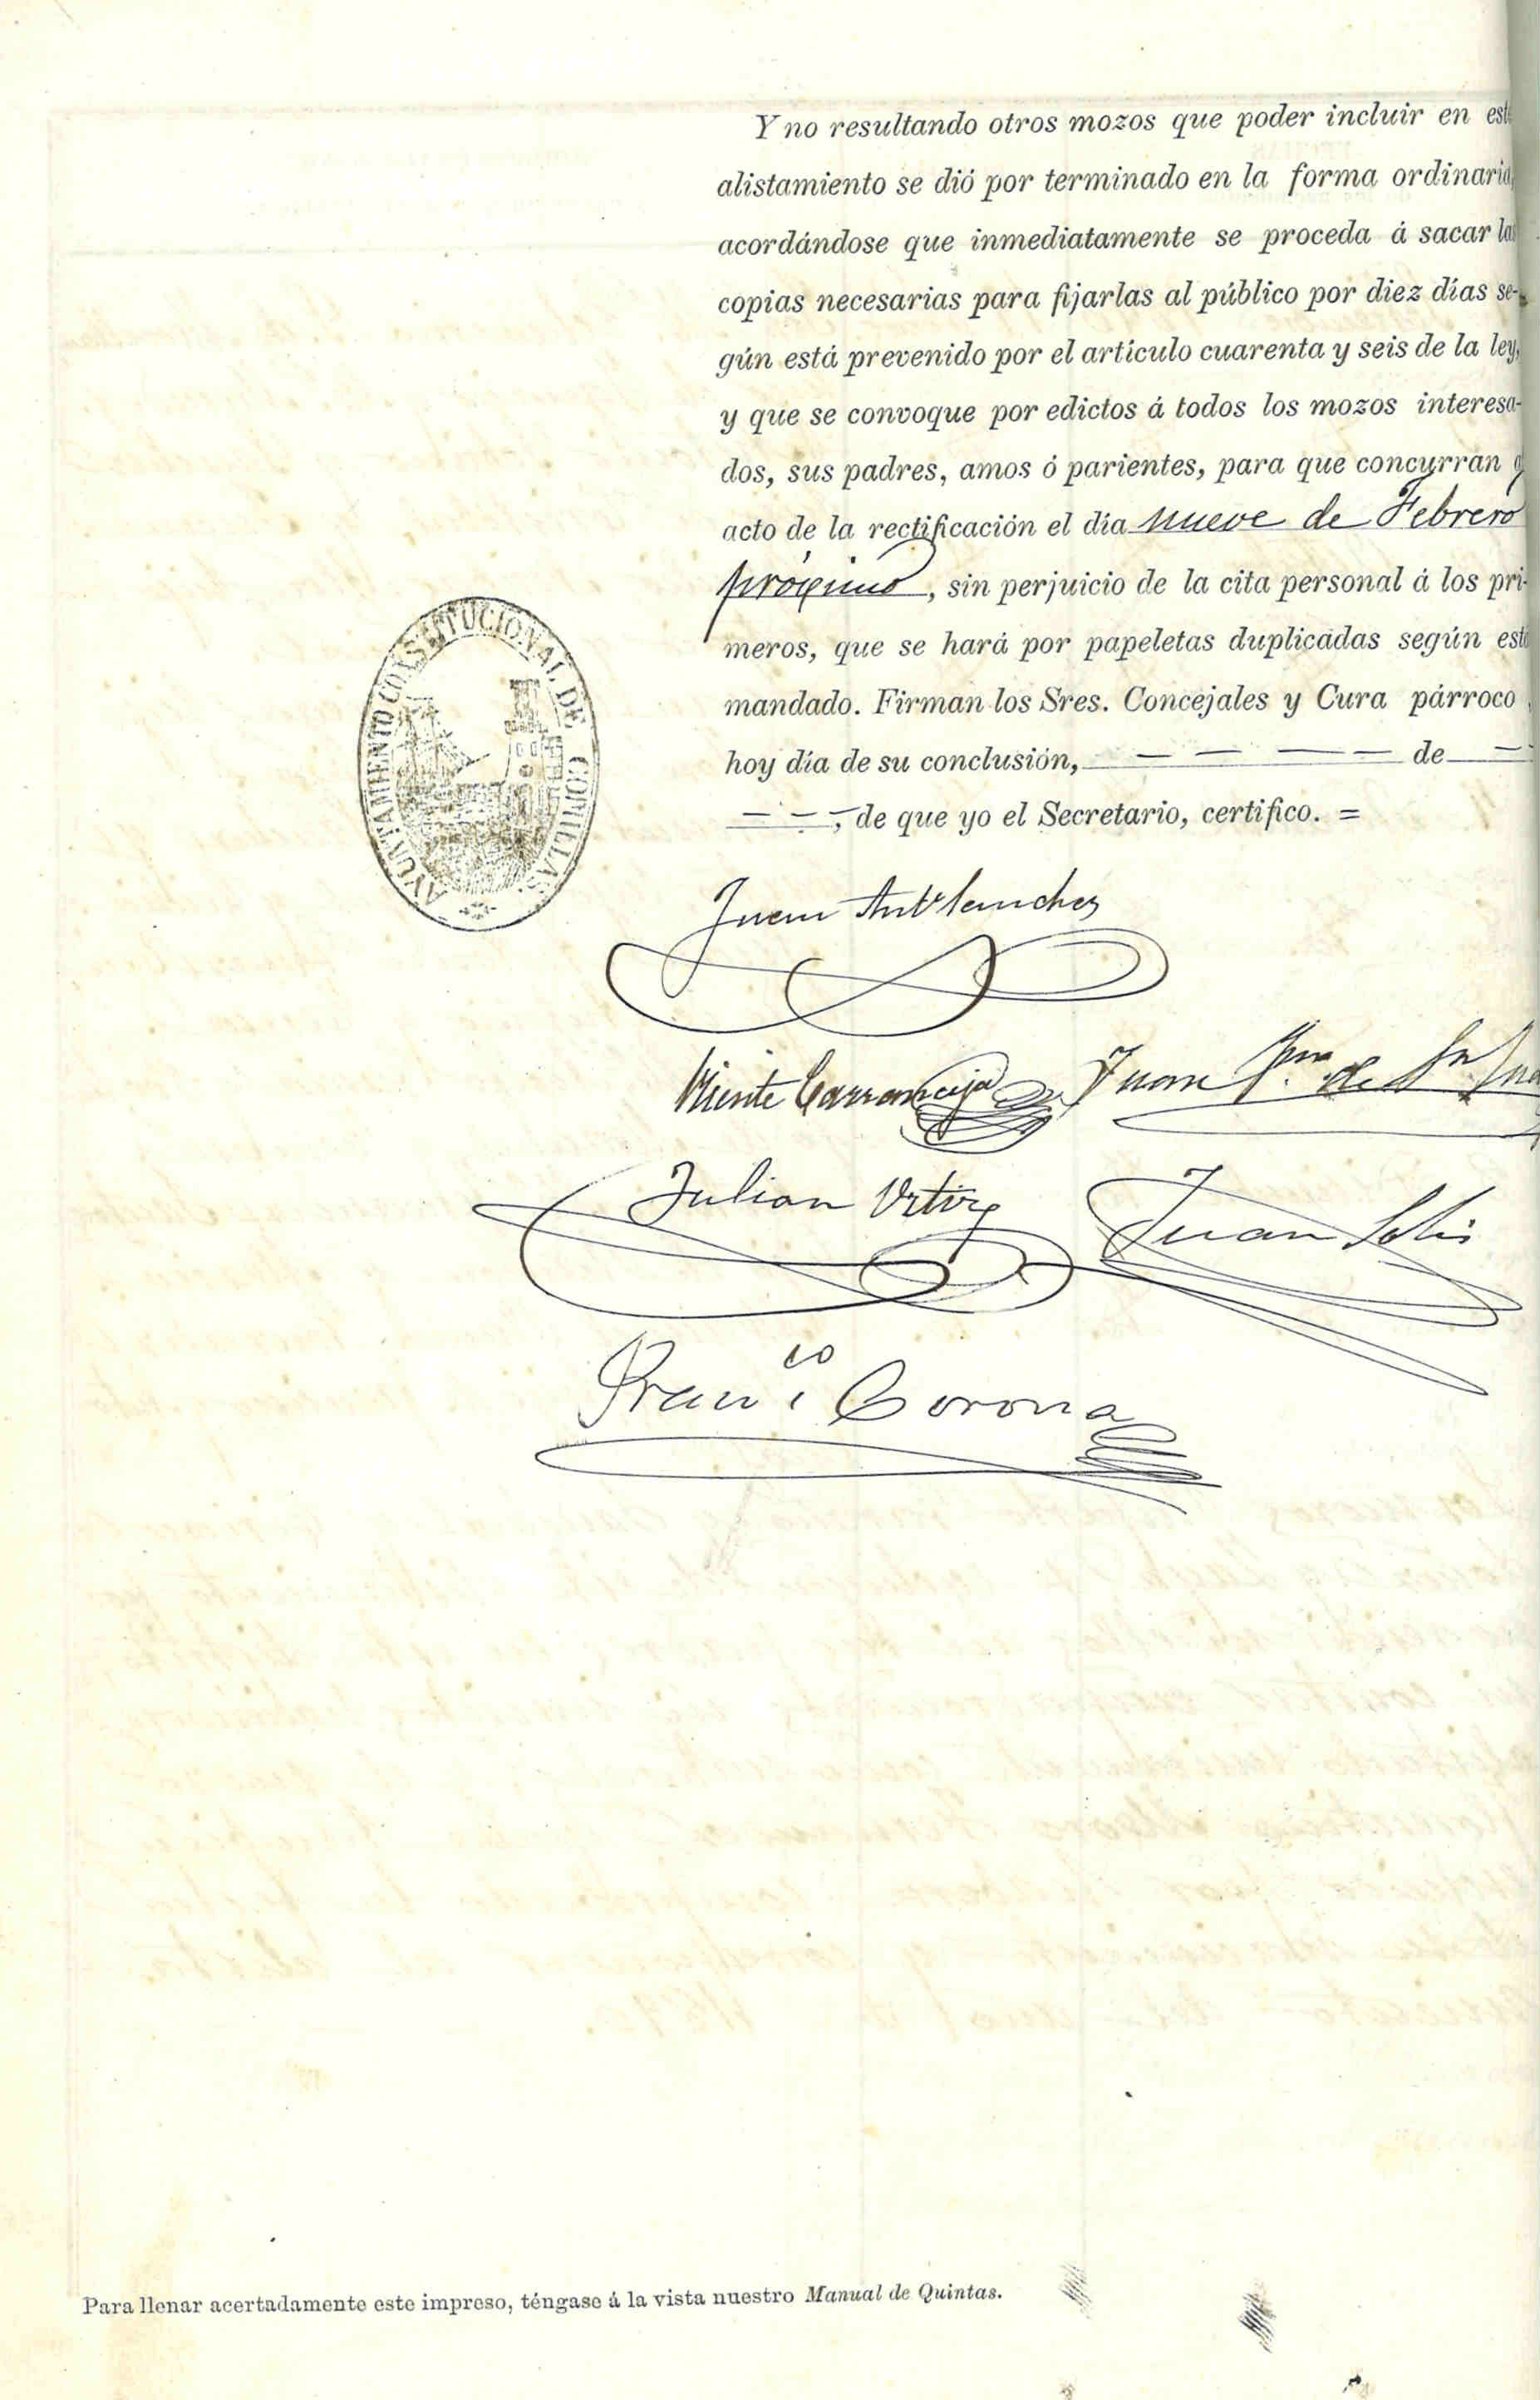 Y no resultando otros mozos que poder incluir en este
alistamiento se dió por terminado en la forma ordinaria,
acordándose que inmediatamente se proceda á sacar las
copias necesarias para fijarlas al público por diez días se-
gún está prevenido por el artículo cuarenta y seis de la ley,
y que se convoque por edictos á todos los mozos interesa-
dos, sus padres, amos ó parientes, para que concurran
acto de la rectificación el día nueve de Febrero
próximo, sin perjuicio de la cita personal á los pri-
meros, que se hará por papeletas duplicadas según está
mandado. Firman los Sres. Concejales y Cura párroco
hoy día de su conclusión, — — — — de —
— — , de que yo el Secretario, certifico. =
AYUNTAMIENTO CONSTITUCIONAL DE COMILLAS
Juan Ant Sanchez
Vicente Juan de
Julian Juan Solis
Franco Corona
Para llenar acertadamente este impreso, téngase á la vista nuestro Manual de Quintas.